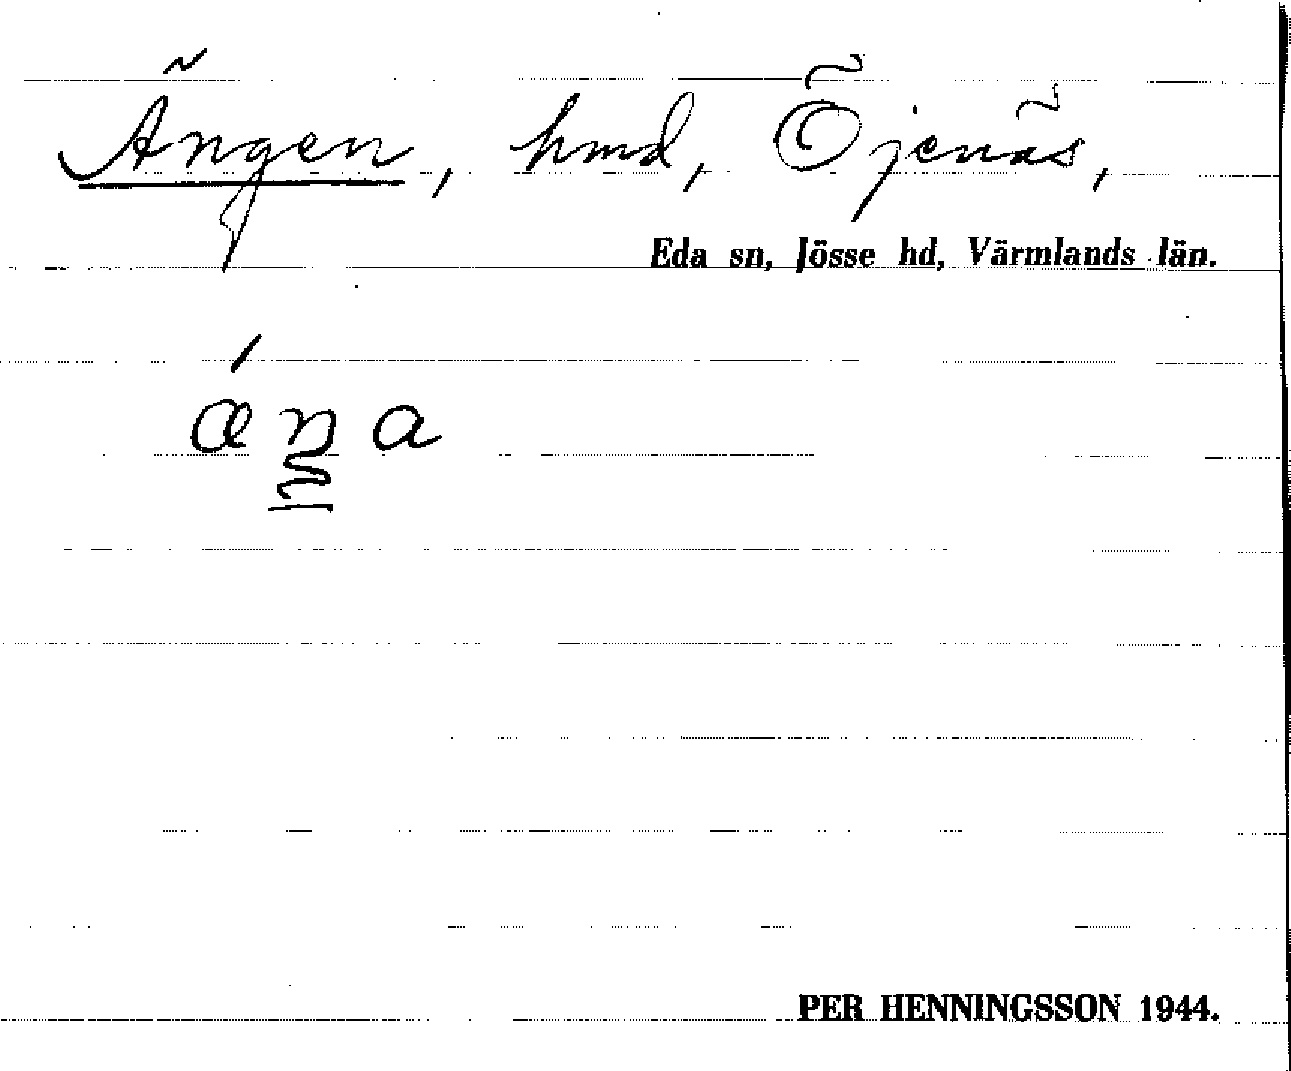 Ängen, hmd, Öjenäs,
Eda sn, Jösse hd, Värmlands län.
PER HENNINGSSON 1944.